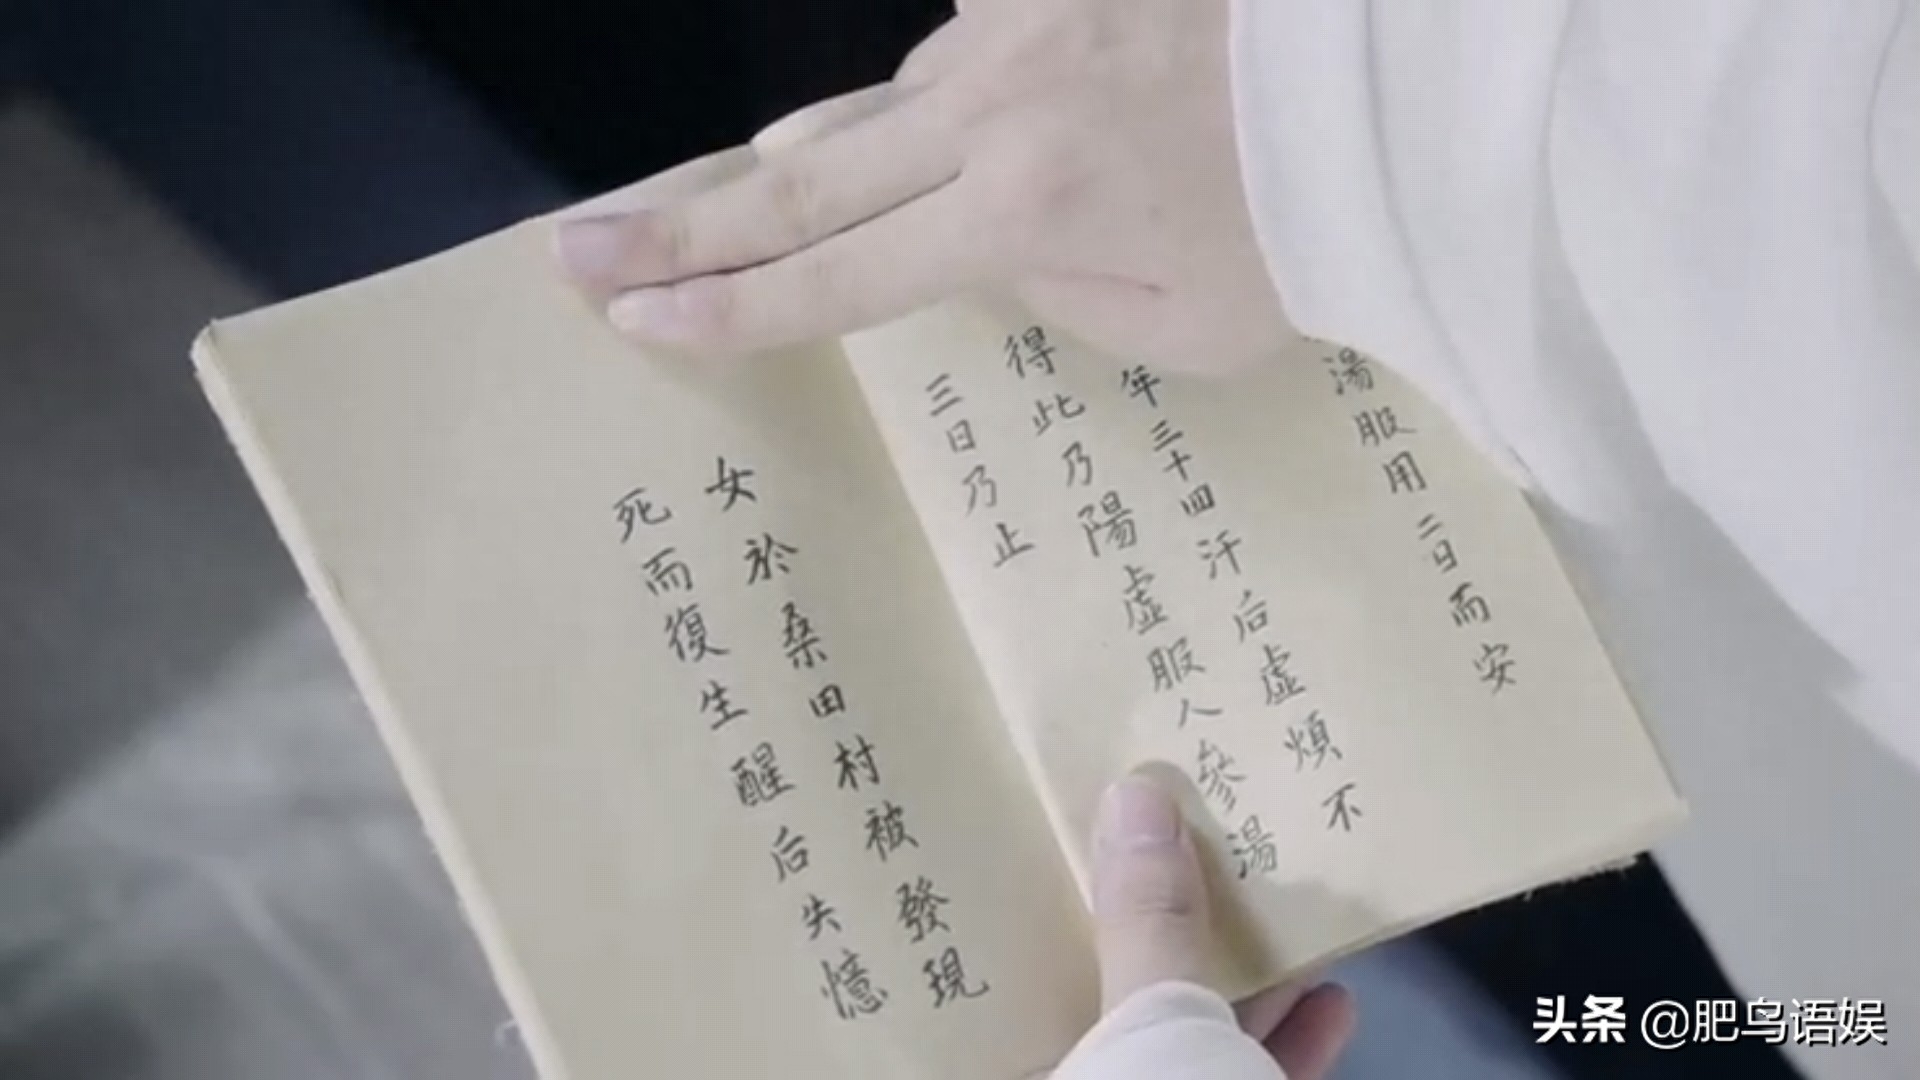 湯服用二日而安
年三十四汗后虛煩不
得此乃陽虛服人參湯
三日乃止
女於桑田村被發現
死而復生醒后失憶
头条 @肥鸟语娱